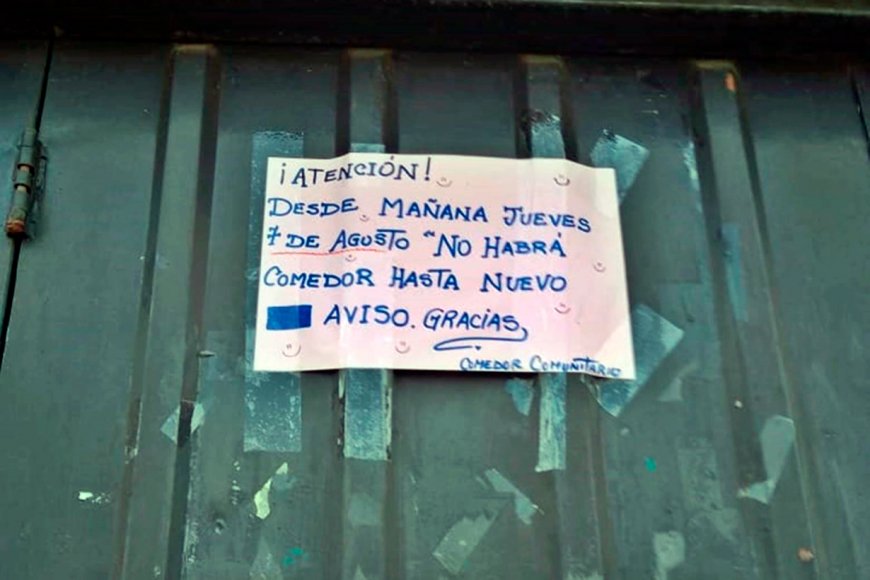 ¡ATENCIÓN!
DESDE MAÑANA JUEVES
7 DE AGOSTO "NO HABRÁ
COMEDOR HASTA NUEVO
AVISO. GRACIAS
COMEDOR COMUNITARIO